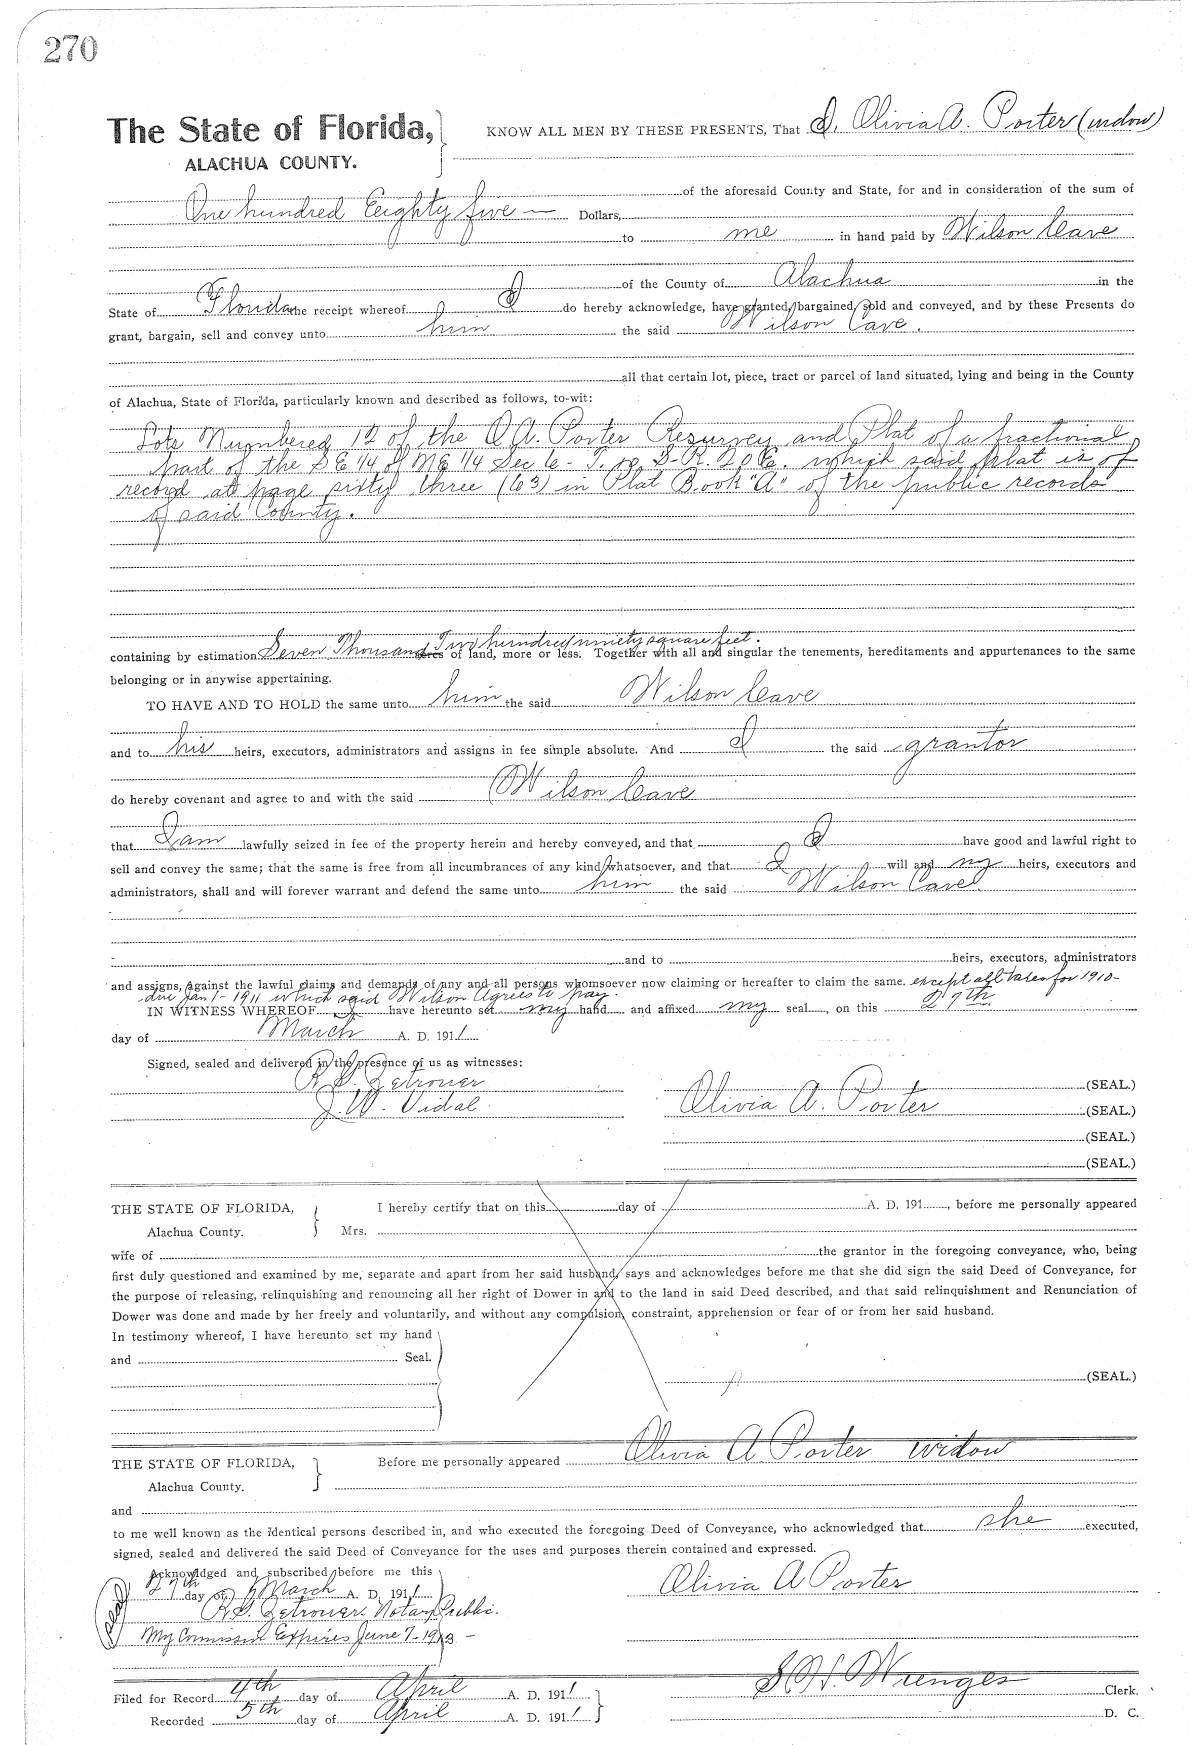 270
The State of Florida, KNOW ALL MEN BY THESE PRESENTS, That I, Olivia A. Porter (widow)
ALACHUA COUNTY.
of the aforesaid County and State, for and in consideration of the sum of
One hundred Eighty five — Dollars,
to me in hand paid by Wilson Cave
of the County of Alachua in the
State of Florida the receipt whereof I do hereby acknowledge, have granted, bargained, sold and conveyed, and by these Presents do
grant, bargain, sell and convey unto him the said Wilson Cave.
all that certain lot, piece, tract or parcel of land situated, lying and being in the County
of Alachua, State of Florida, particularly known and described as follows, to-wit:
Lots Numbered 12 of the O.A. Porter Resurvey and Plat of a fractional
part of the SE 1/4 of NE 1/4 Sec 6 - T. 10 S- R. 20 E. which said plat is of
record at page sixty three (63) in Plat Book "A" of the public records
of said County.
containing by estimation Seven Thousand Two hundred ninety square feet. acres of land, more or less. Together with all and singular the tenements, hereditaments and appurtenances to the same
belonging or in anywise appertaining.
TO HAVE AND TO HOLD the same unto him the said Wilson Cave
and to his heirs, executors, administrators and assigns in fee simple absolute. And I the said grantor
do hereby covenant and agree to and with the said Wilson Cave
that I am lawfully seized in fee of the property herein and hereby conveyed, and that I have good and lawful right to
sell and convey the same; that the same is free from all incumbrances of any kind whatsoever, and that I will and my heirs, executors and
administrators, shall and will forever warrant and defend the same unto him the said Wilson Cave
and to heirs, executors, administrators
and assigns, against the lawful claims and demands of any and all persons whomsoever now claiming or hereafter to claim the same. except all taxes for 1910-
due Jan 1 - 1911 which said Wilson Agrees to pay.
IN WITNESS WHEREOF I have hereunto set my hand and affixed my seal, on this 27th
day of March A. D. 1911
Signed, sealed and delivered in the presence of us as witnesses:
R.S. Zetrouer (SEAL.)
J. W. Vidal. Olivia A. Porter (SEAL.)
(SEAL.)
(SEAL.)
THE STATE OF FLORIDA, I hereby certify that on this day of A. D. 191, before me personally appeared
Alachua County. Mrs.
wife of the grantor in the foregoing conveyance, who, being
first duly questioned and examined by me, separate and apart from her said husband, says and acknowledges before me that she did sign the said Deed of Conveyance, for
the purpose of releasing, relinquishing and renouncing all her right of Dower in and to the land in said Deed described, and that said relinquishment and Renunciation of
Dower was done and made by her freely and voluntarily, and without any compulsion, constraint, apprehension or fear of or from her said husband.
In testimony whereof, I have hereunto set my hand
and Seal.
(SEAL.)
THE STATE OF FLORIDA, Before me personally appeared Olivia A Porter widow
Alachua County.
and
to me well known as the identical persons described in, and who executed the foregoing Deed of Conveyance, who acknowledged that she executed,
signed, sealed and delivered the said Deed of Conveyance for the uses and purposes therein contained and expressed.
Acknowldged and subscribed before me this
27th day of March A. D. 1911 Olivia A Porter
(Seal) R.S. Zetrouer. Notary Public.
My Commission Expires June 7 - 1913 -
Filed for Record 4th day of April A. D. 1911 S. H. Wienges Clerk.
Recorded 5th day of April A. D. 1911 D. C.